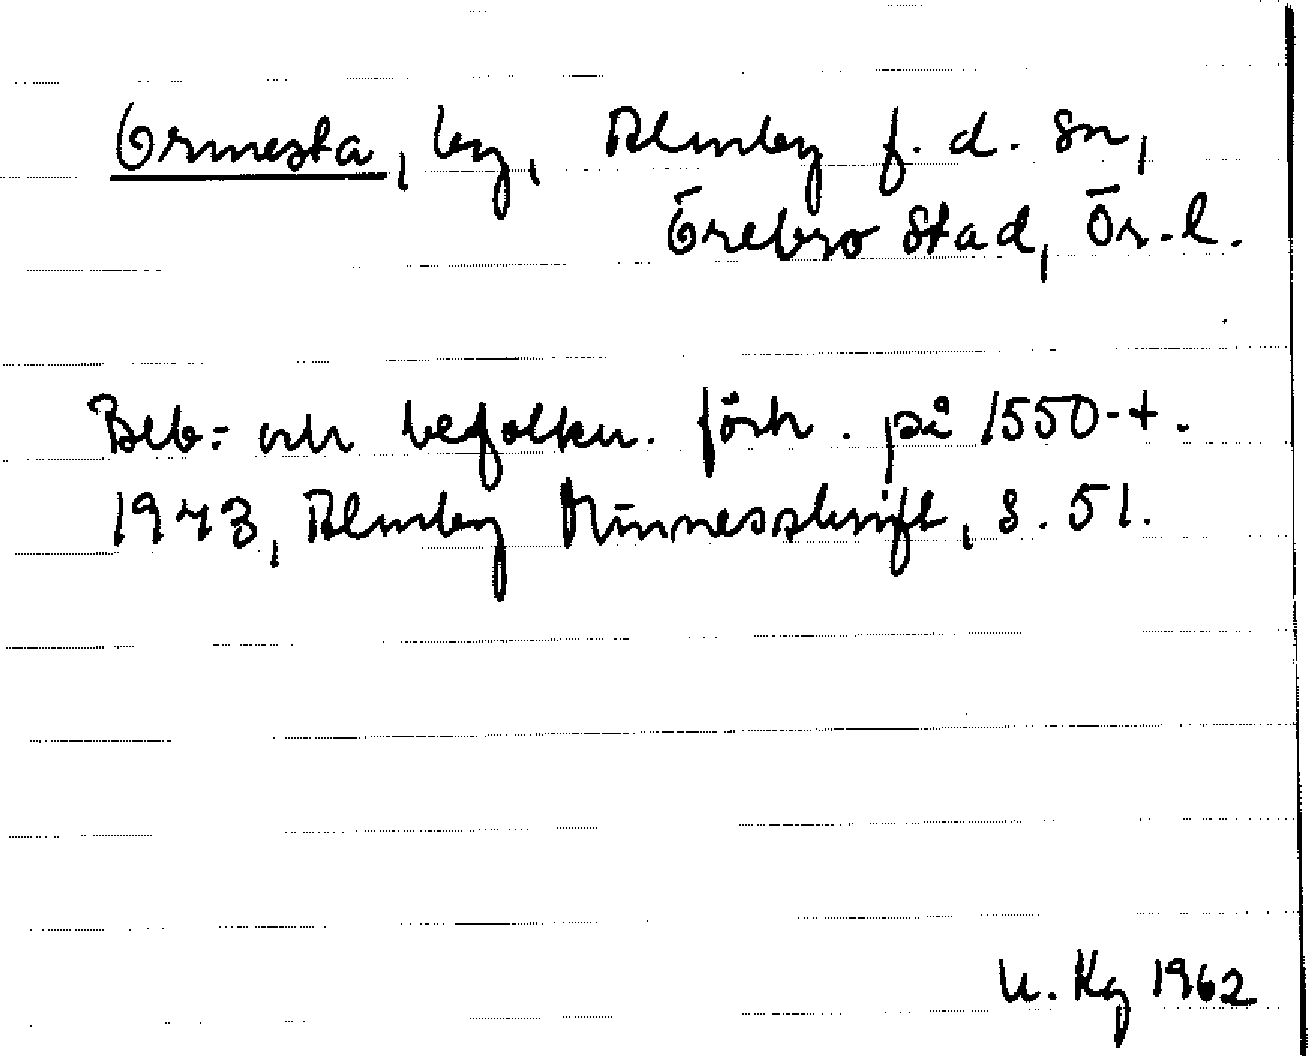 Ormesta, by, Almby f. d. sn,
Örebro stad, Ör. l.
Beb.- och befolkn. förh. på 1550-t.
1943, Almby Minnesskrift, s. 51.
U. Kg 1962